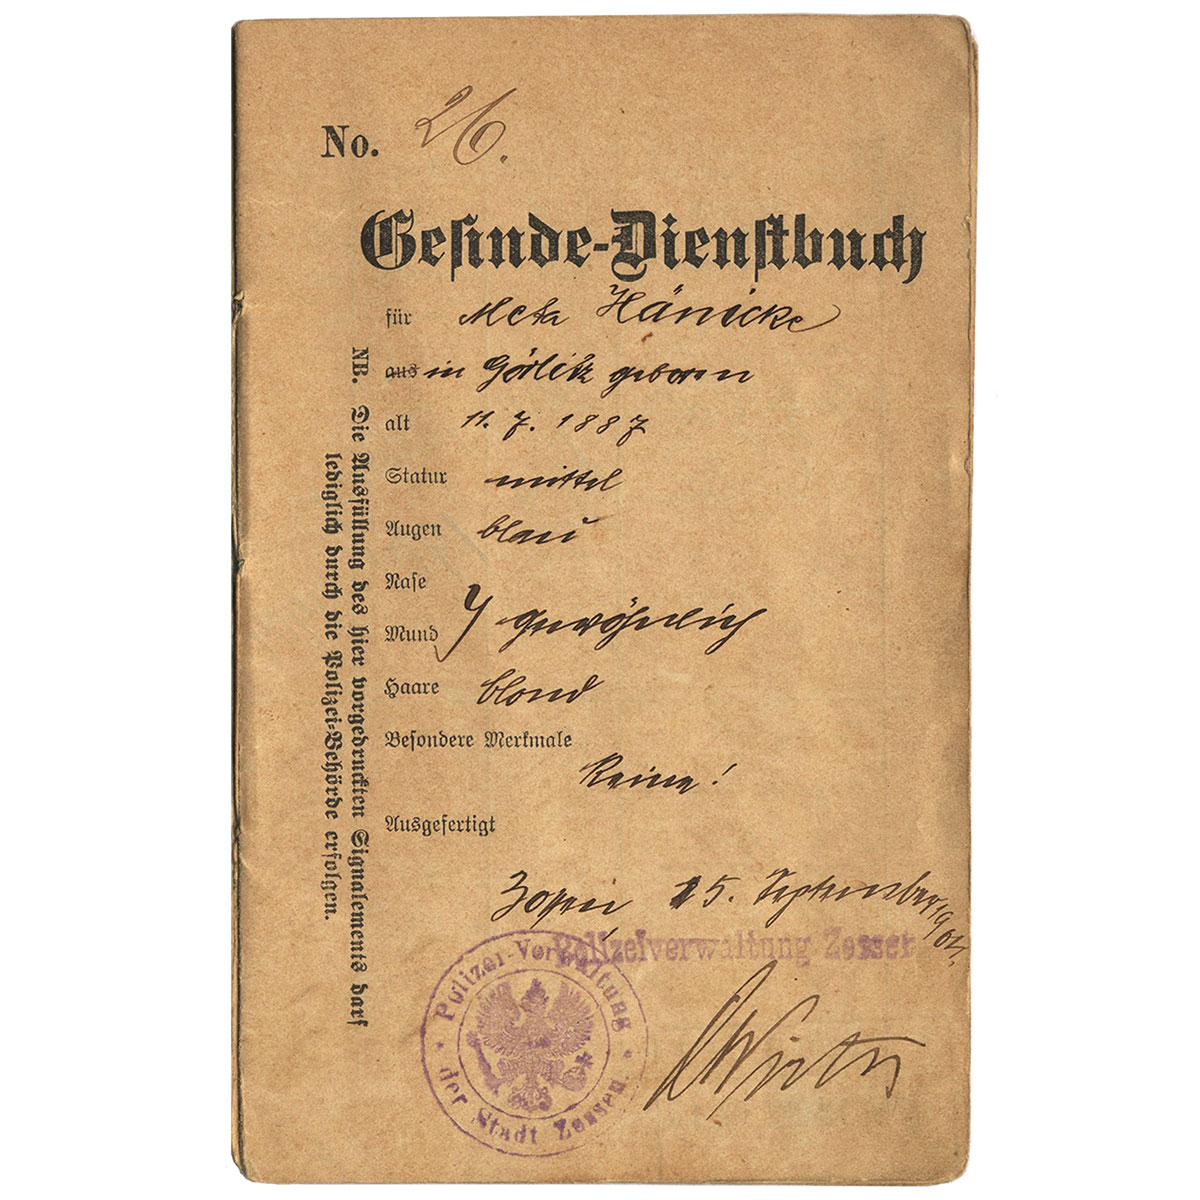 No. 26.
Gesinde-Dienstbuch
für Meta Hänicke
aus in Görlitz geboren
alt 11. 7. 1887
Statur mittel
Augen blau
Nase
Mund } gewöhnlich
Haare blond
Besondere Merkmale
Keine!
Ausgefertigt
Zossen 15. September 1904.
Polizeiverwaltung Zossen
Polizei-Verwaltung
der Stadt Zossen.
NB. Die Ausfüllung des hier vorgedruckten Signalements darf
lediglich durch die Polizei-Behörde erfolgen.